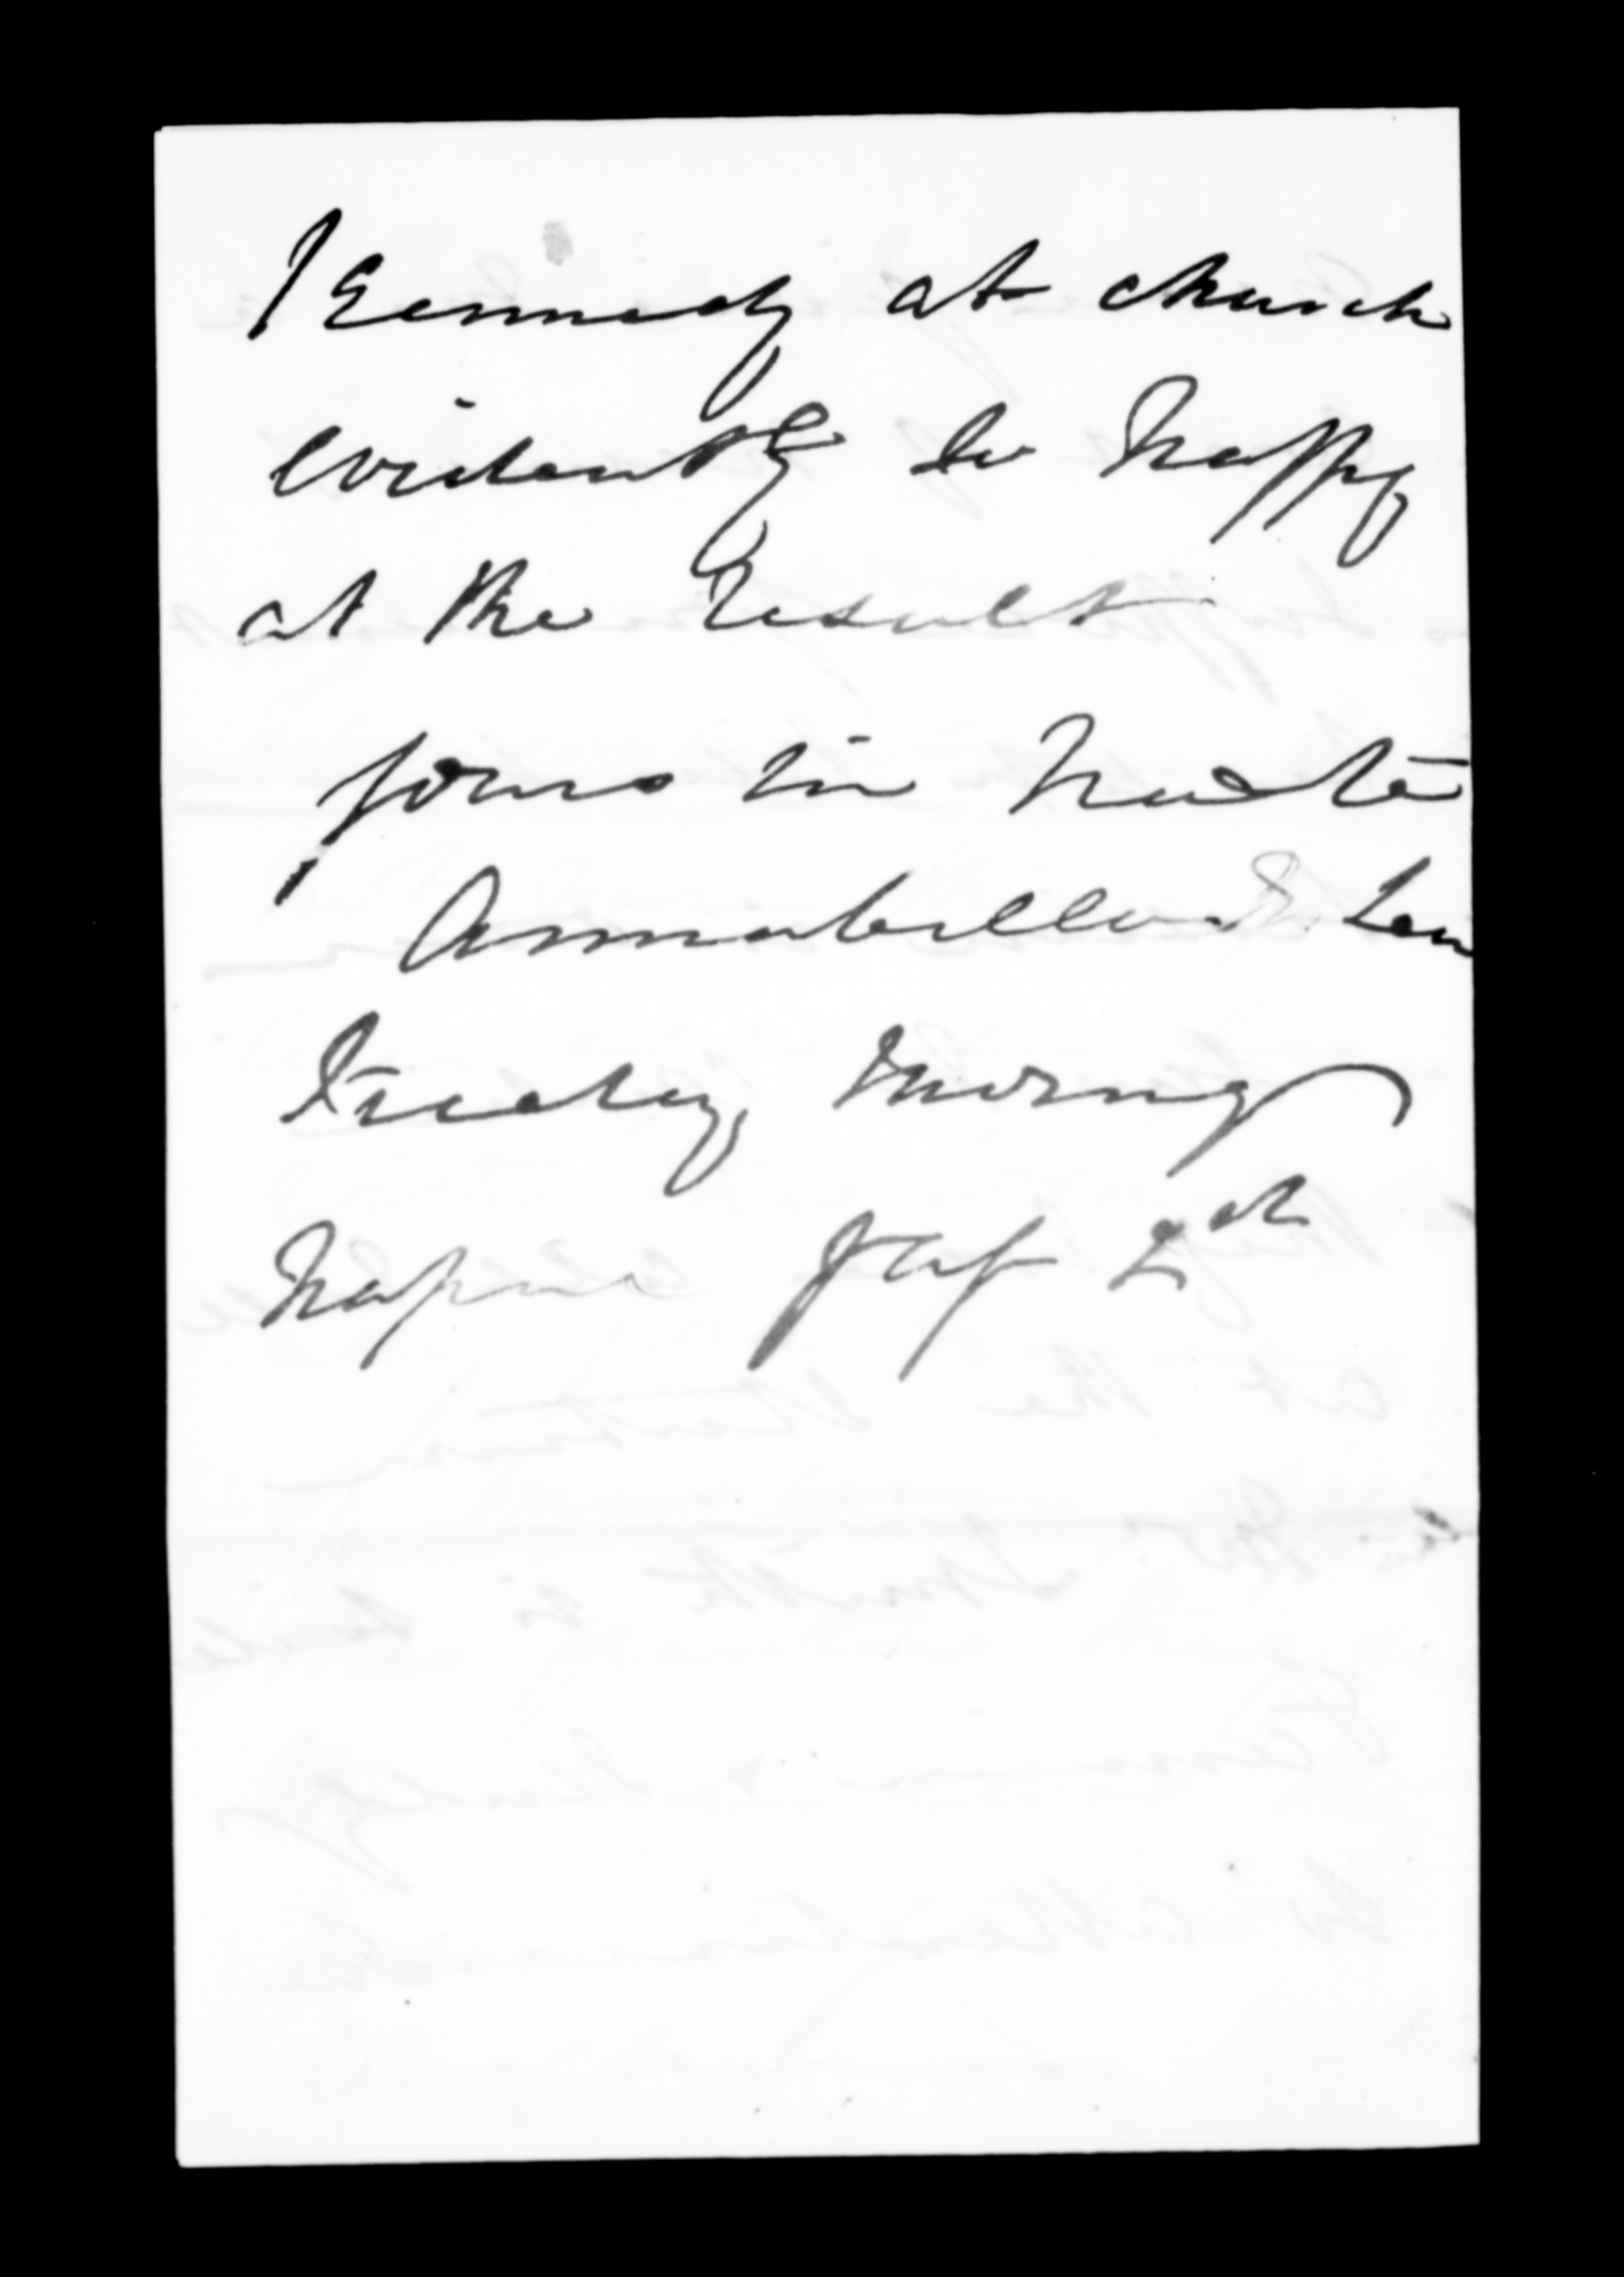 Kennedy at church
evidently so happy
at the result
yours in haste
Annabella Lean
Friday Morng
Napier Sep 2nd